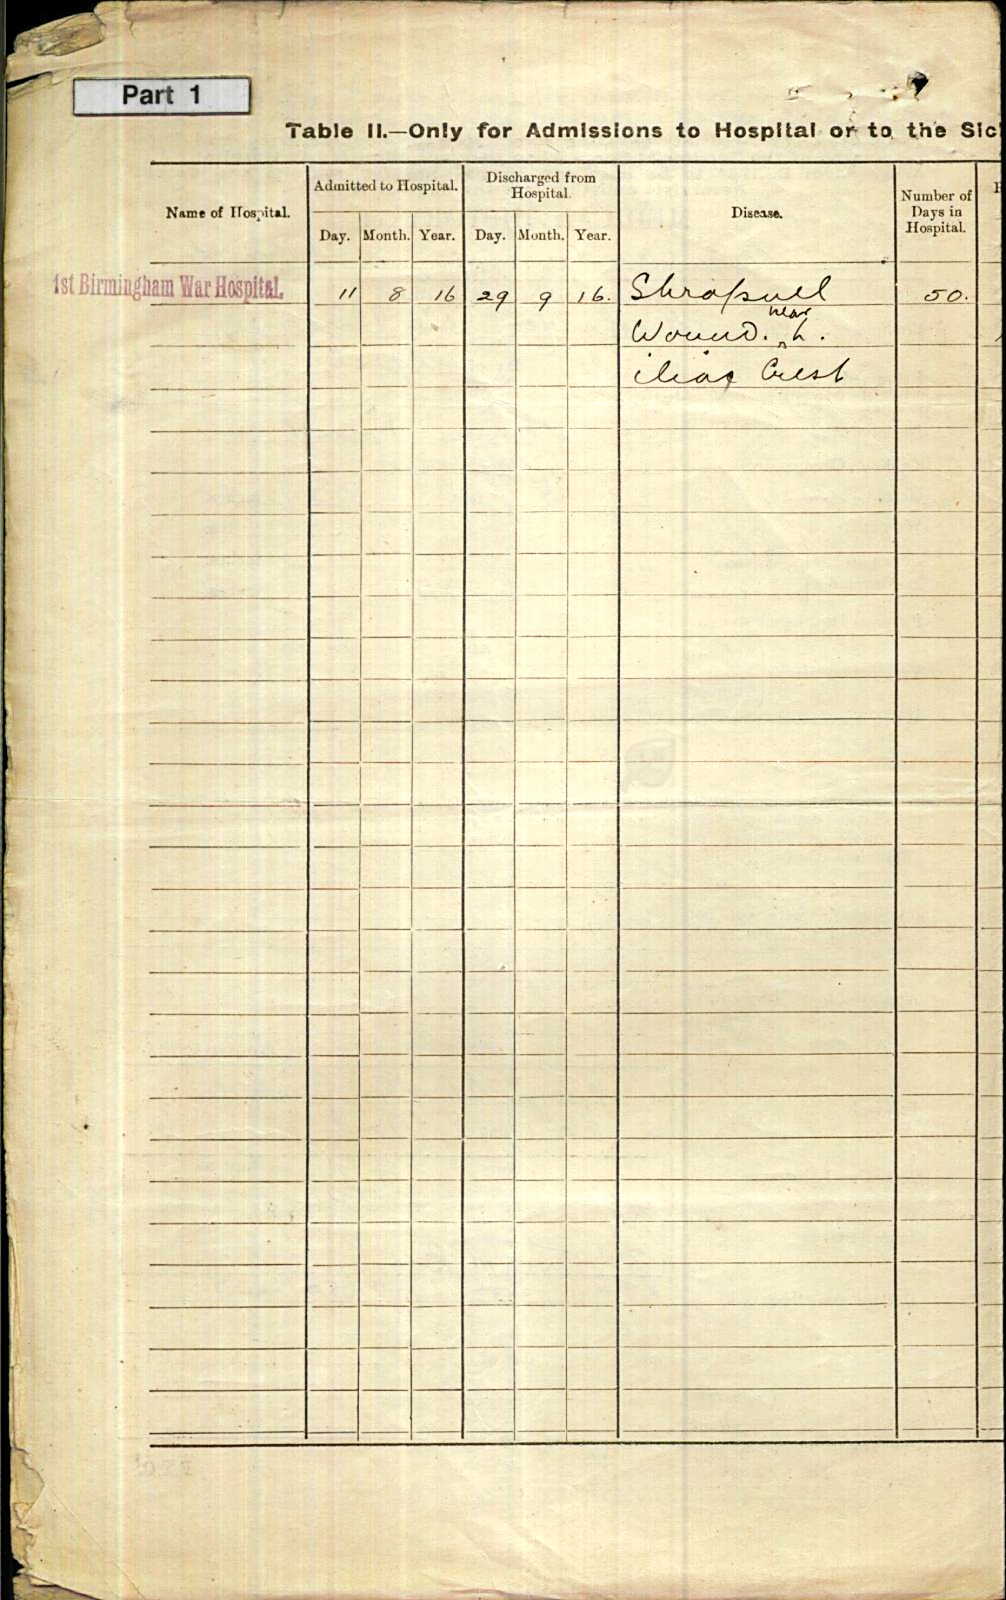 Part 1
Table II.—Only for Admissions to Hospital or to the Sic
Name of Hospital.
Admitted to Hospital.
Discharged from
Hospital.
Disease.
Number of
Days in
Hospital.
Day. Month. Year. Day. Month. Year.
1st Birmingham War Hospital. 11 8 16 29 9 16. Shrapnell 50.
near
Wound. L.
iliac Crest